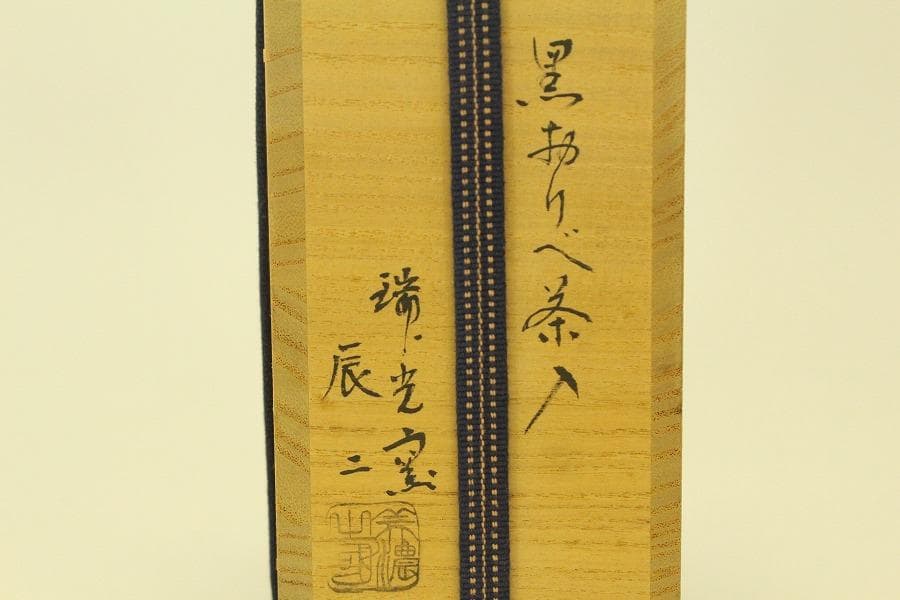 黒おりべ茶入
瑞光窯
辰二
美濃